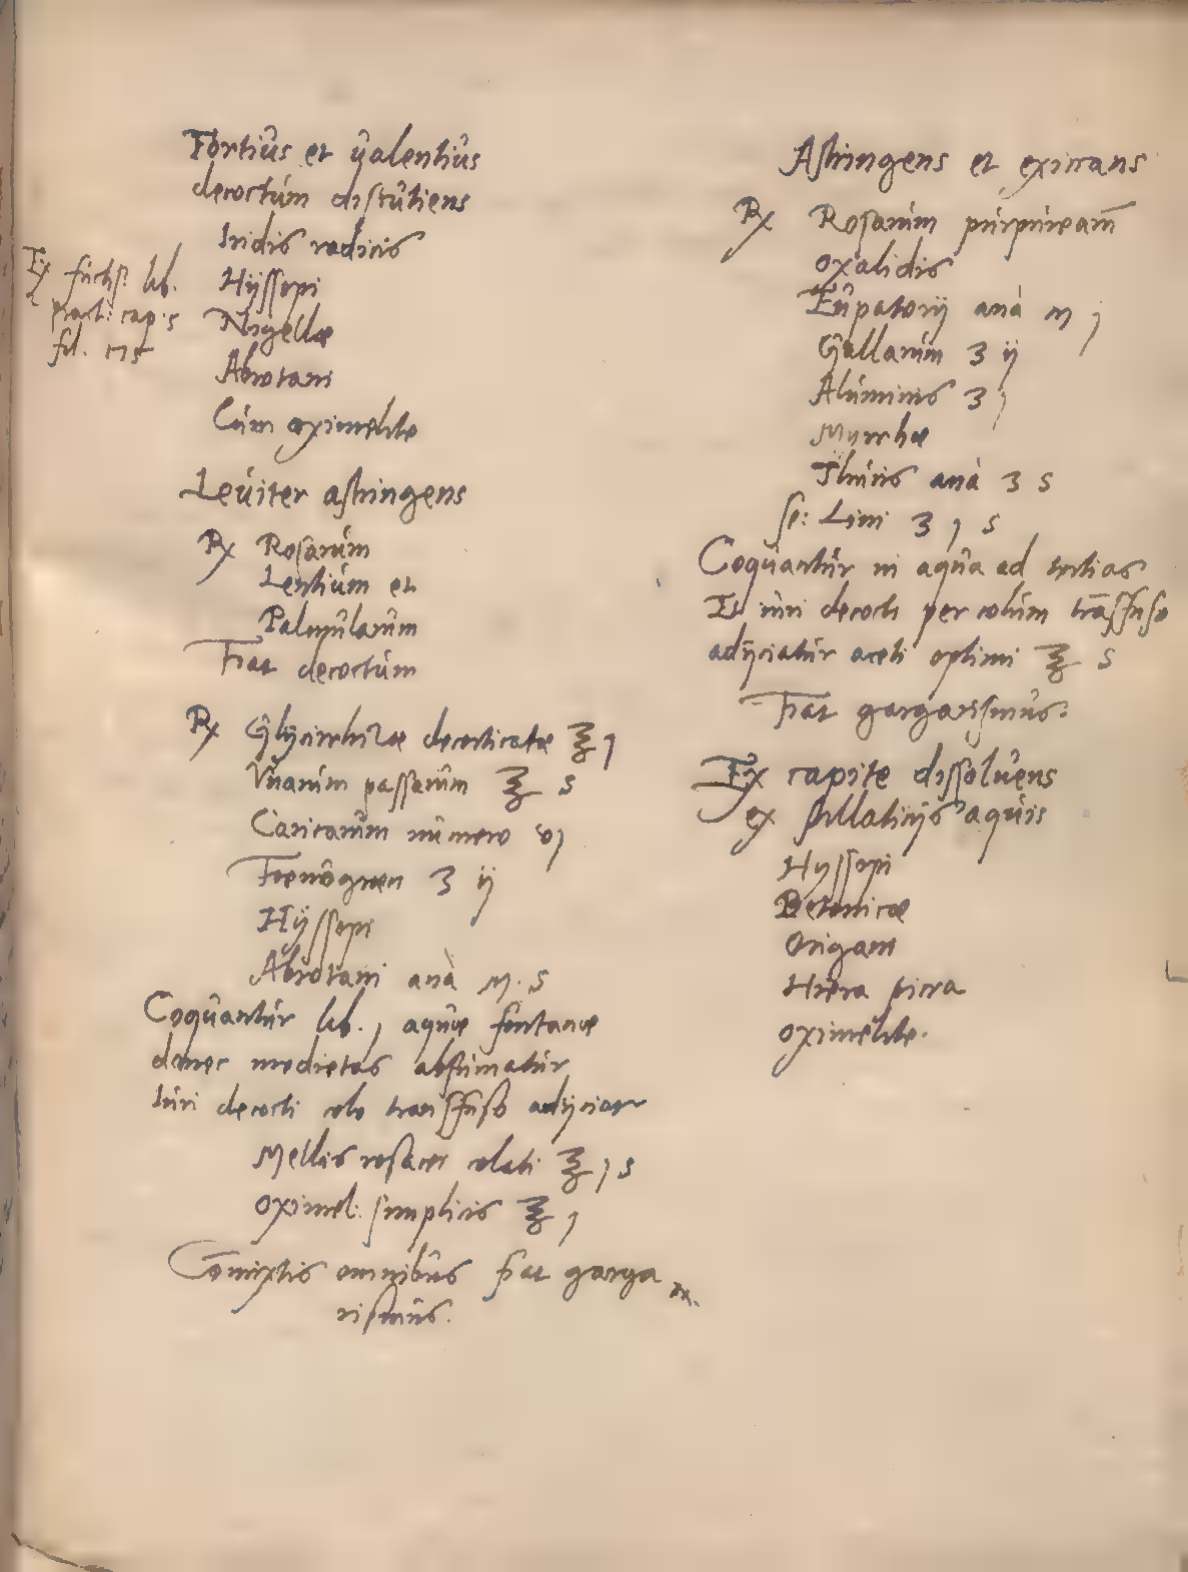 Fortius et valentius
decoctum discutiens
Iridis radicis
Ex fuchs: lib.
pract: cap. 5
fol.
Hyssopi
Nigellæ
Abrotani
Cum oximelite
Leviter astringens
℞ Rosarum
Lentium et
Palmularum
Fiat decoctum
℞ Glycirrhizæ decorticatæ ℥ j
Vuarum passarum ℥ s
Caricarum numero vj
Foenogræci ʒ ij
Hyssopi
Abrotani anà m. s
Coquantur lib. j aquæ fontanæ
donec medietas absumatur
Iuri decocti colo transfuso adijciatur
Mellis rosacei colati ℥ j s
Oximel: simplicis ℥ j
Comixtis omnibus fiat garga
rismus.
Astringens et exiccans
℞ Rosarum purpurearum
oxalidis
Eupatorij anà m j
Gallarum ʒ ij
Aluminis ʒ j
Myrrhæ
Thuris anà ʒ s
se: Lini ʒ j s
Coquantur in aqua ad tertias
Et iuri decocti per colum trãsfuso
adijciatur aceti optimi ℥ s
Fiat gargarismus.
Ex capite dissoluens
ex stillaticijs aquis
Hyssopi
Betonicæ
Origani
Hiera picra
oximelite.